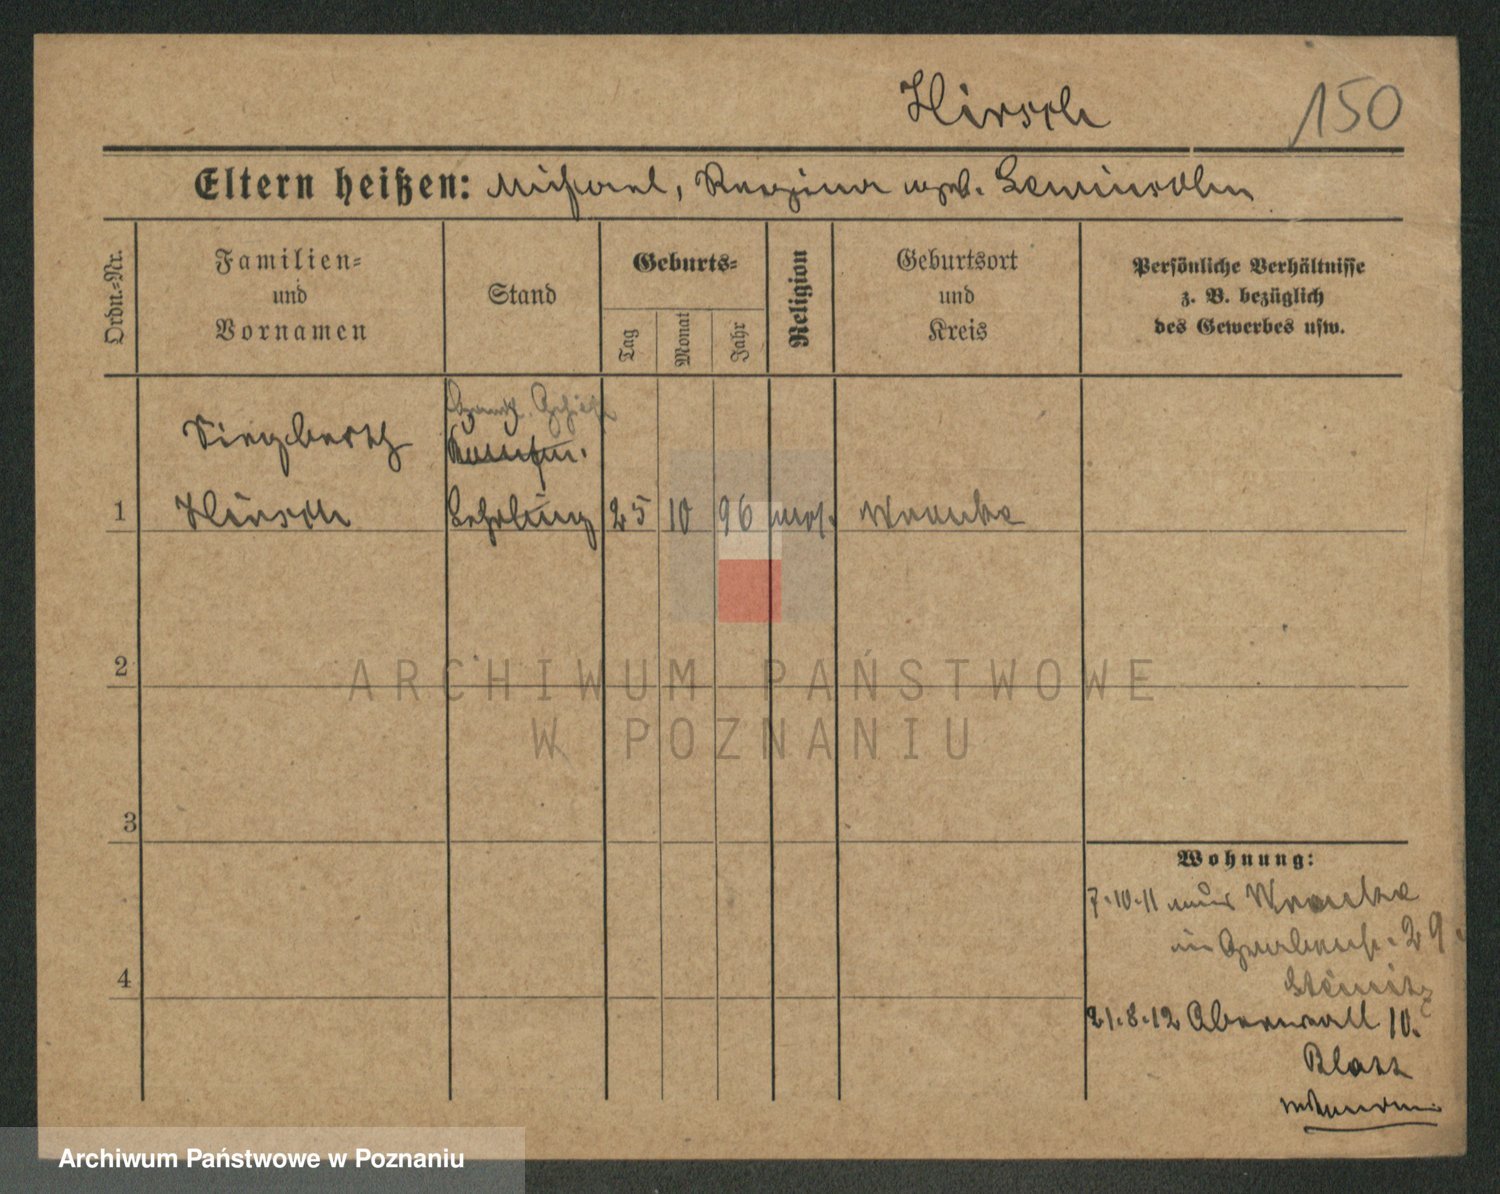 Hirsch 150
Eltern heißen: Michael, Regina geb. Lewinsohn
Ordn.-Nr.
Familien=
und
Vornamen
Stand
Geburts=
Tag
Monat
Jahr
Religion
Geburtsort
und
Kreis
Persönliche Verhältnisse
z. B. bezüglich
des Gewerbes usw.
Siegberth
Kaufm.
1 Hirsch Lehrling 25 10 96 mos. Wronke
2
ARCHIWUM PAŃSTWOWE
W POZNANIU
3
Wohnung:
7.10.11 aus Wronke
in Grabenstr. 29
4
21.8.12 Oberwall 10.
Archiwum Państwowe w Poznaniu